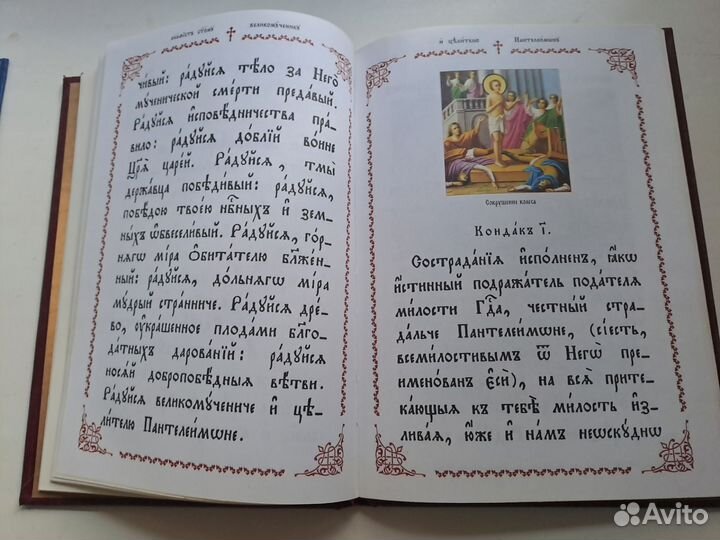 а҆ка́ѳистъ ст҃о́мꙋ великомч҃нкꙋ
чи́вый: ра́дꙋйсѧ тѣ́ло за Него̀
мꙋ́ченической сме́рти преда́вый.
Ра́дꙋйсѧ и҆сповѣ́дничества пра́-
вило: ра́дꙋйсѧ до́блїй во́ине
Цр҃ѧ̀ царе́й. Ра́дꙋйсѧ, тмы̀
держа́вца побѣди́вый: ра́дꙋйсѧ,
побѣ́дою твое́ю нб҃ныхъ и҆ зем-
ны́хъ ѡ҆бвесели́вый. Ра́дꙋйсѧ, го́р-
нѧгѡ мі́ра Ѻ҆бита́телю бл҃же́н-
ный: ра́дꙋйсѧ, до́льнѧгѡ мі́ра
мꙋ́дрый стра́нниче. Ра́дꙋйсѧ дре́-
во, ᲂу҆кра́шенное плода́ми бл҃года́-
тныхъ дарова́нїй: ра́дꙋйсѧ
носѧ́й добропобѣ́дныѧ вѣ́тви.
Ра́дꙋйсѧ великомꙋ́чениче и҆ цѣ-
ли́телю Пантелеи́мѡне.
и҆ цѣли́телю Пантелеи́монꙋ
Сокрушение колеса
Конда́къ і҃.
Сострада́нїѧ и҆спо́лненъ, ꙗ҆́кѡ
и҆́стинный подража́тель пода́телѧ
ми́лости Гдⷭ҇а, че́стный стра-
да́льче Пантелеи́мѡне, (сіе́сть,
всеми́лостивымъ ѿ Негѡ̀ пре-
имено́ванъ є҆сѝ), на всѧ̑ прите-
ка́ющыѧ къ тебѣ̀ ми́лость и҆з-
лива́ѧ, ю҆́же и҆ на́мъ неѡскꙋ́днѡ
Avito